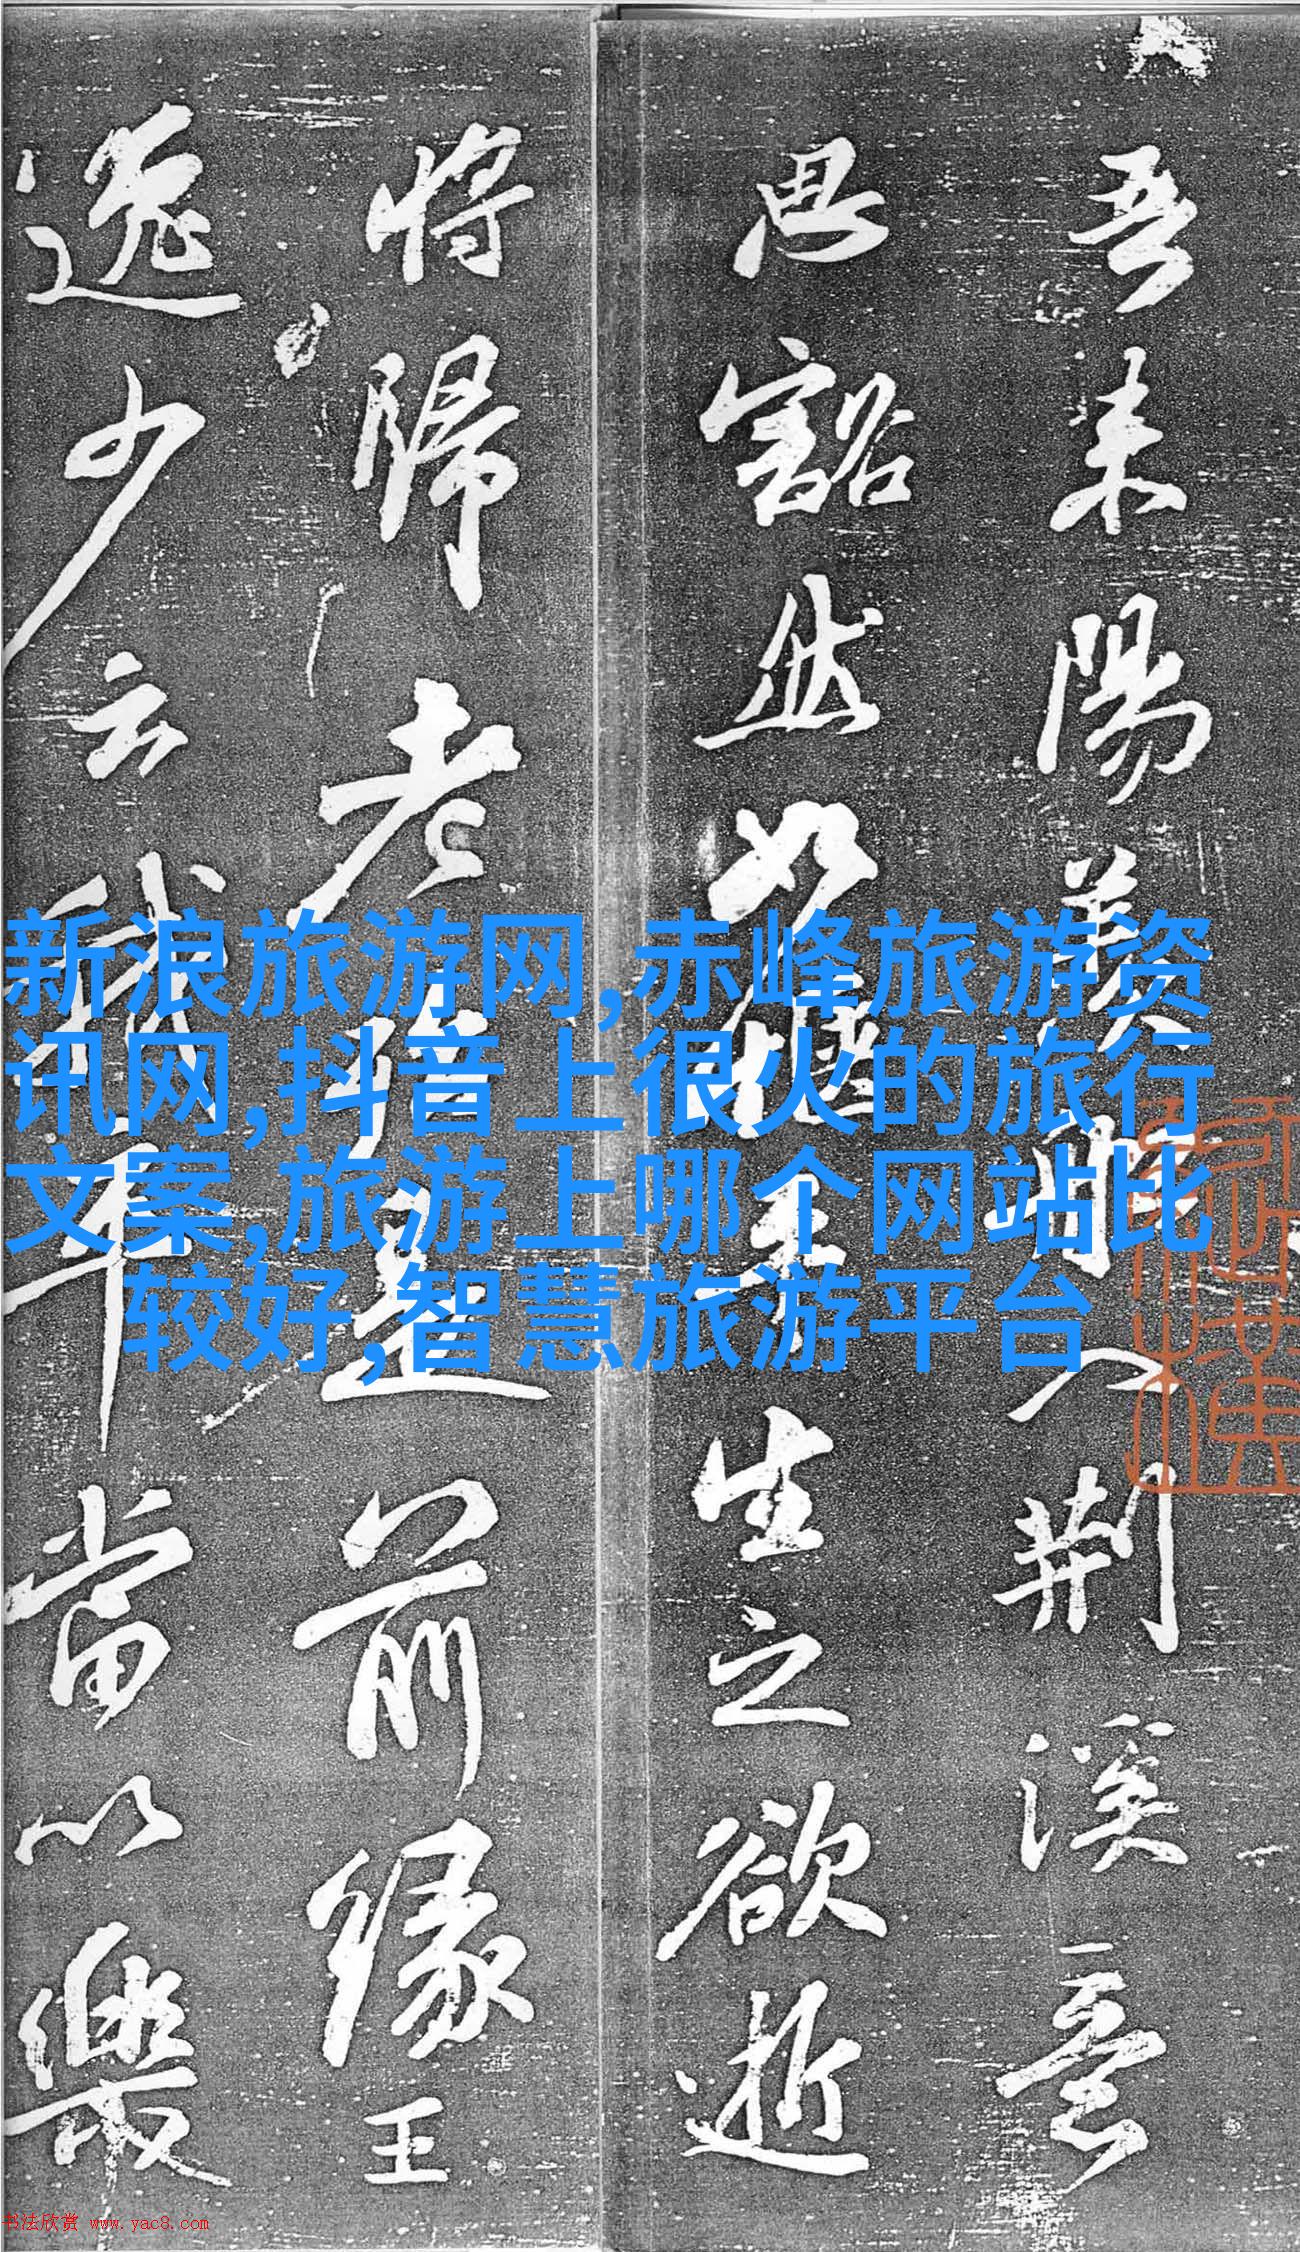 吾来陽羡船入荆溪意
思豁然如愜平生之欲逝
将歸老殆是前緣王
逸少云我卒當以樂
新浪旅游网,赤峰旅游资
讯网,抖音上很火的旅行
文案,旅游上哪个网站比
较好,智慧旅游平台
书法欣赏 www.yac8.com